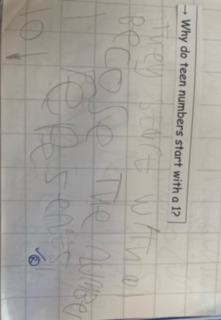 → Why do teen numbers start with a 1?
They start with a1
Becose The numbe
rePesents
10